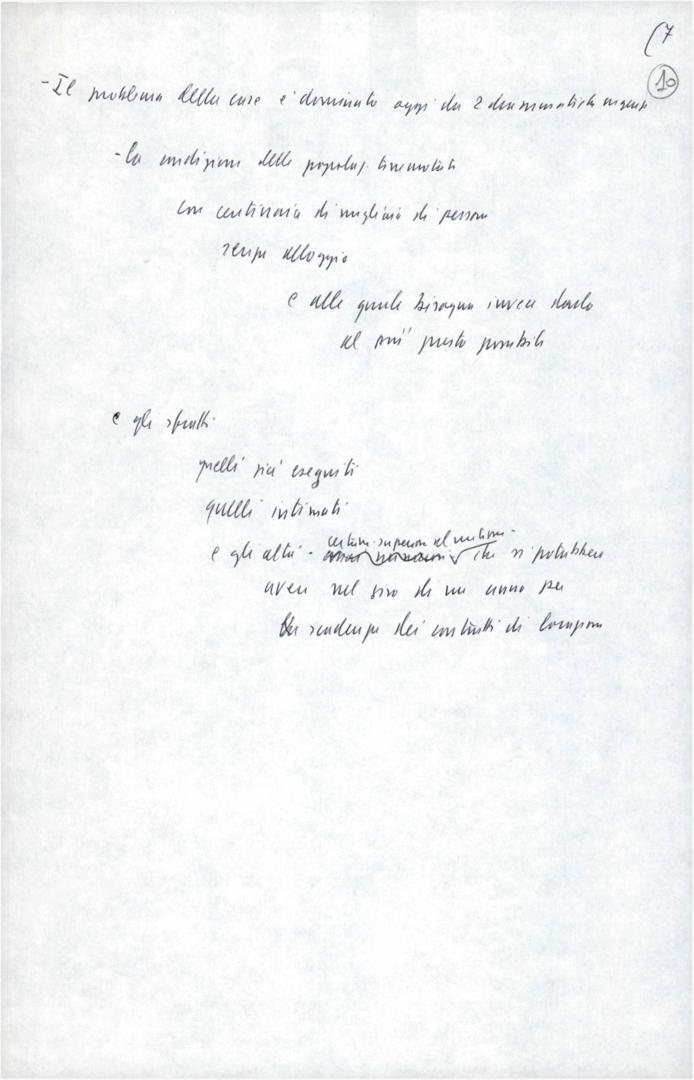 (7
10
- Il problema della casa e' dominato oggi da 2 drammatiche urgenze
- la condizione delle popolaz. terremotate
con centinaia di migliaia di persone
senza alloggio
e alle quali bisogna invece darlo
al più presto possibile
e gli sfratti
quelli già eseguiti
quelli intimati
certam. superiori al milione -
e gli altri - che si potrebbero
avere nel giro di un anno per
la scadenza dei contratti di locazione